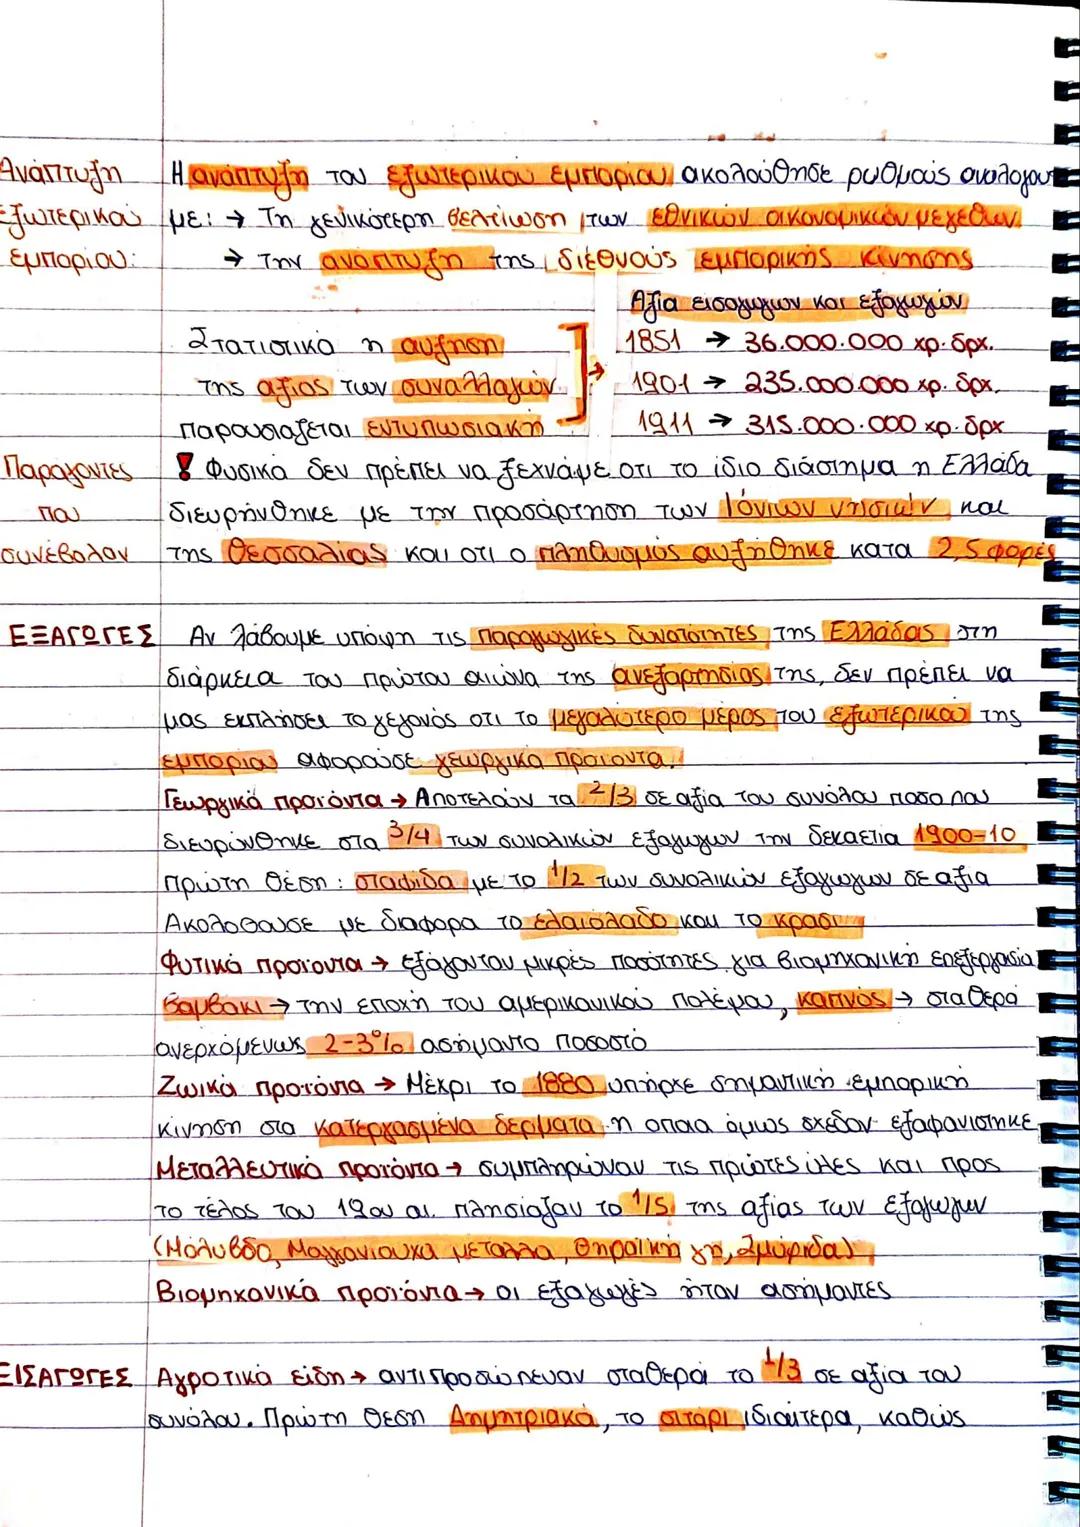 Ανάπτυξη Η ανάπτυξη του εξωτερικού εμπορίου ακολούθησε ρυθμούς αναλόγου
Εξωτερικού με: → Τη γενικότερη βελτίωση των εθνικών οικονομικών μεγεθών
Εμπορίου: → Την ανάπτυξη της διεθνούς εμπορικής κίνησης
Αξία εισαγωγών και εξαγωγών
Στατιστικά η αύξηση 1851 → 36.000.000 χρ. δρχ.
της αξίας των συναλλαγών 1901 → 235.000.000 χρ. δρχ.
παρουσιάζεται εντυπωσιακή 1911 → 315.000.000 χρ. δρχ
Παράγοντες ! Φυσικά δεν πρέπει να ξεχνάμε οτι το ίδιο διάστημα η Ελλάδα
που διευρήνθηκε με την προσάρτηση των Ιόνιων νησιών και
συνέβαλαν της Θεσσαλίας και οτι ο πληθυσμός αυξήθηκε κατα 2,5 φορές
ΕΞΑΓΩΓΕΣ Αν λάβουμε υπόψη τις παραγωγικές δυνατότητες της Ελλάδας στη
διάρκεια του πρώτου αιώνα της ανεξαρτησίας της, δεν πρέπει να
μας εκπλήσει το γεγονός οτι το μεγαλύτερο μέρος του εξωτερικού της
εμπορίου αφορούσε γεωργικά προϊοντα.
Γεωργικά προϊόντα → Αποτελούν τα 2/3 σε αξία του συνόλου ποσο που
διευρύνθηκε στα 3/4 των συνολικών εξαγωγών την δεκαετία 1900-10
Πρώτη θέση: σταφίδα με το 1/2 των συνολικών εξαγωγών σε αξία
Ακολοθουσε με διαφορα το ελαιόλαδο και το κρασί
Φυτικά προϊοντα → εξάγονταν μικρές ποσότητες για βιομηχανική επεξεργασία
βαμβάκι → την εποχή του αμερικανικού πολέμου, καπνός → σταθερά
ανερχόμενως 2-3% ασήμαντο ποσοστό
Ζωικά προϊόντα → Μέχρι το 1880 υπήρχε σημαντική εμπορική
κίνηση στα κατεργασμένα δέρματα η οποια όμως σχεδόν εξαφανιστηκε
Μεταλλευτικά προϊόντα → συμπληρώναν τις πρώτες ύλες και προς
το τέλος του 19ου αι. πλησίαζαν το 1/5 της αξίας των εξαγωγών
(Μόλυβδο, Μαγγανιούχα μέταλλα, Θηραϊκή γη, Σμύριδα)
Βιομηχανικά προϊόντα → οι εξαγωγές ήταν ασήμαντες
ΕΙΣΑΓΩΓΕΣ Αγροτικά είδη → αντιπροσώπευαν σταθερά το 1/3 σε αξία του
συνόλου. Πρώτη θέση Δημητριακά, το σιτάρι ιδιαίτερα, καθώς